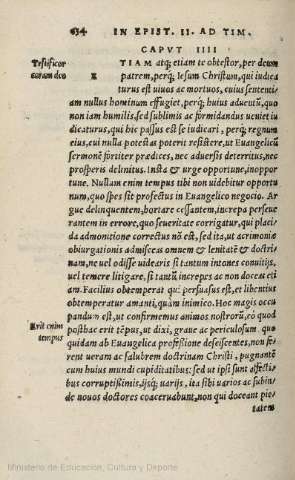 634 IN EPIST. II. AD TIM.
CAPVT IIII
Testificor coram deo
TIAM atq; etiam te obtestor, per deum
patrem, perq; Iesum Christum, qui iudica
turus est uiuos ac mortuos, cuius sententi
am nullus hominum effugiet, perq; huius aduentū, quo
non iam humilis, sed sublimis ac formidandus ueniet iu
dicaturus, qui hic passus est se iudicari, perq; regnum
eius, cui nulla potestas poterit resistere, ut Euangelicū
sermonē fortiter prædices, nec aduersis deterritus, nec
prosperis delinitus. Insta & urge oportune, inoppor
tune. Nullum enim tempus tibi non uidebitur opportu
num, quo spes sit profectus in Euangelico negocio. Ar
gue delinquentem, hortare cessantem, increpa perseue
rantem in errore, quo seueritate corrigatur, qui placi
da admonitione correctus nō est, sed ita, ut acrimoniæ
obiurgationis admisceas omnem & lenitatē & doctri
nam, ne uel odisse uidearis si tantum intones conuitijs,
uel temere litigare, si tantū increpas ac non doceas eti
am. Facilius obtemperat qui persuasus est, et libentius
obtemperatur amanti, quàm inimico. Hoc magis occu
pandum est, ut confirmemus animos nostrorū, cō quod
Erit enim tempus
posthac erit tēpus, ut dixi, graue ac periculosum quo
quidam ab Euangelica professione desciscentes, non fe
rent ueram ac salubrem doctrinam Christi, pugnantē
cum huius mundi cupiditatibus: sed ut ipsi sunt affecti
bus corruptissimis, ijsq; uarijs, ita sibi uarios ac subin
de nouos doctores coaceruabunt, non qui doceant pie
tatem
Ministerio de Educación, Cultura y Deporte